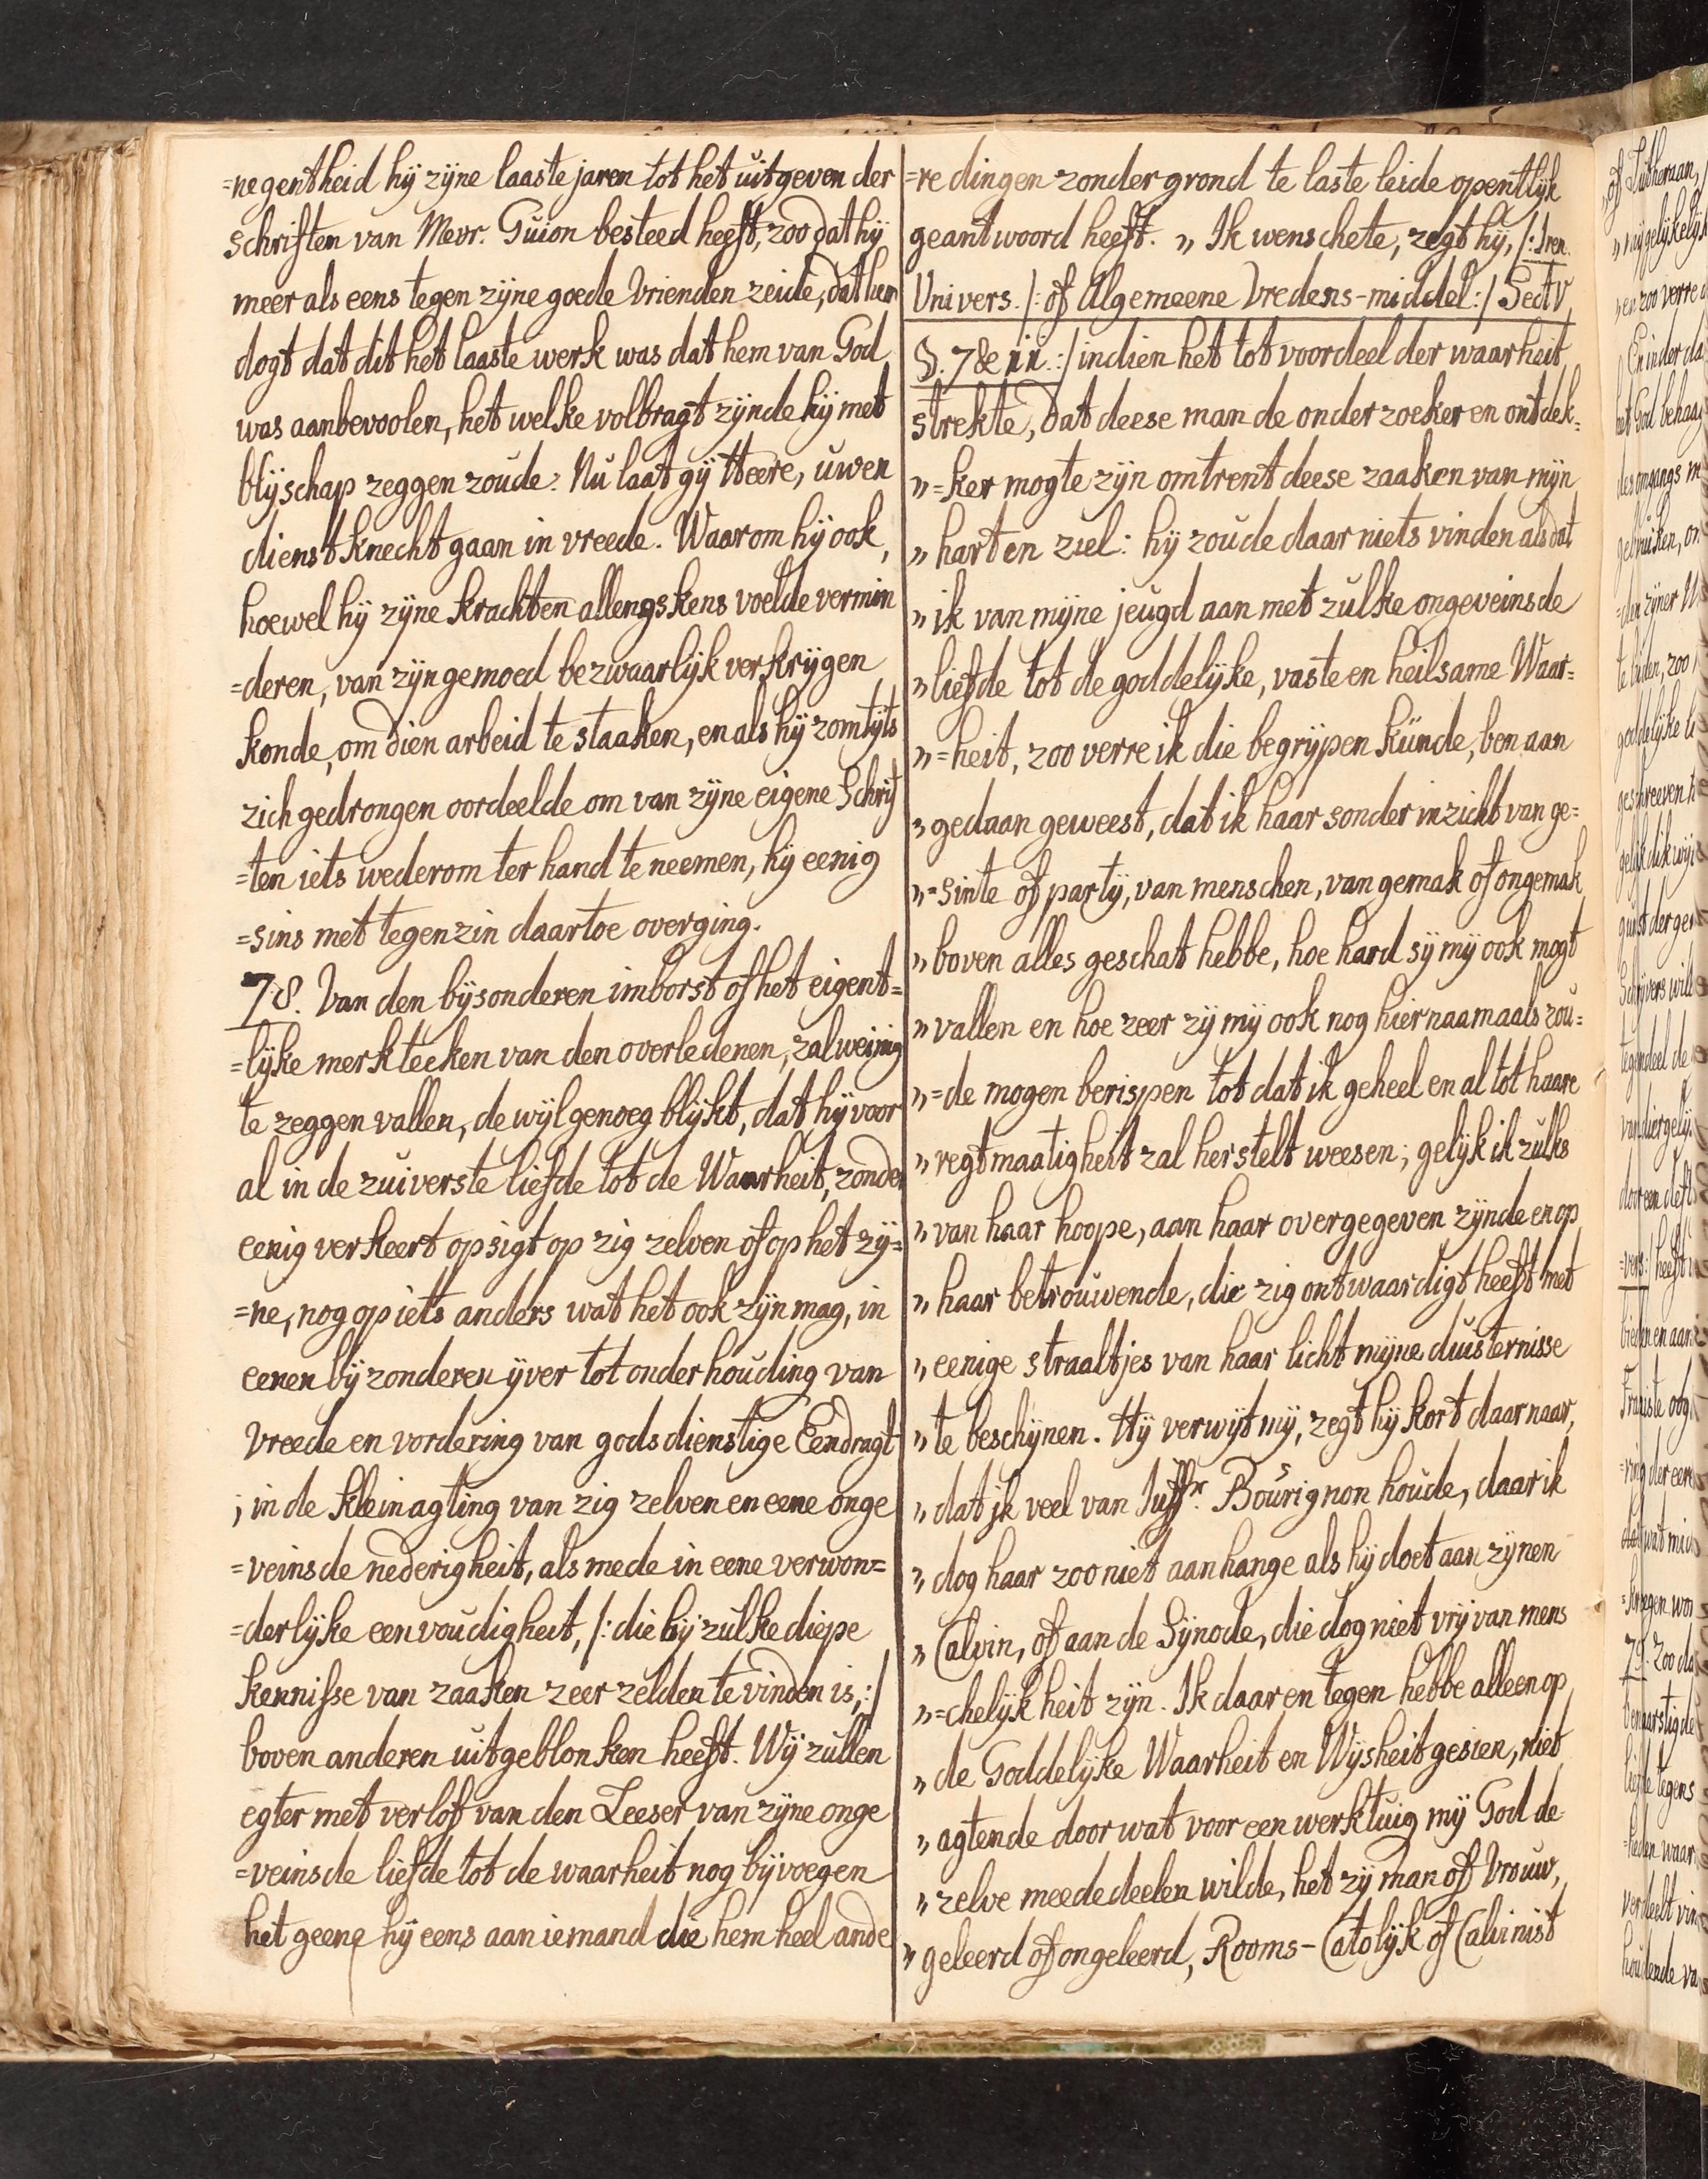 =negentheid hij zijne laaste jaren tot het uitgeven der
schriften van Mevr. Guion besteed heeft, zoo dat hij
meer als eens tegen zijne goede Vrienden zeide, dat hem
dogt dat dit het laaste werk was dat hem van God
was aanbevoolen, het welke volbragt zijnde hij met
blijschap zeggen zoude: Nu laat gij Heere, uwen
dienst knecht gaan in vreede. Waarom hij ook,
hoewel hij zijne krachten allengskens voelde vermin
=deren, van zijn gemoed bezwaarlijk verkrijgen
konde, om dien arbeid te staaken, en als hij zomtijts
zich gedrongen oordeelde om van zijne eigene Schrif
=ten iets wederom ter hand te neemen, hij eenig
=sins met tegenzin daartoe overging.
78. Van den bijsonderen imborst of het eigent=
=lijke merkteeken van den overledenen, zal weinig
te zeggen vallen, dewijl genoeg blijkt, dat hij voor
al in de zuiverste liefde tot de Waarheit, zonder
eenig verkeert opsigt op zig zelven of op het zij=
=ne, nog op iets anders wat het ook zijn mag, in
eenen bijzonderen ijver tot onderhouding van
Vreede en vordering van godsdienstige Eendragt
; in de kleinagting van zig zelven en eene onge
=veinsde nederigheit, als mede in eene verwon=
=derlijke eenvoudigheit, /: die bij zulke diepe
kennisse van zaaken zeer zelden te vinden is, :/
boven anderen uitgeblonken heeft. Wij zullen
egter met verlof van den Leeser van zijne onge
=veinsde liefde tot de waarheit nog bijvoegen
het geene hij eens aan iemand die hem heel ande
=re dingen zonder grond te laste leide opentlijk
geantwoord heeft. „ Ik wenschete, zegt hij, /: Iren.
Univers. /: of Algemeene Vredens-middel :/ Sect V,
§. 7 & 11. :/ indien het tot voordeel der waarheit
strekte, dat deese man de onderzoeker en ontdek=
„=ker mogte zijn omtrent deese zaaken van mijn
„ hart en ziel: hij zoude daar niets vinden als dat
„ ik van mijne jeugd aan met zulke ongeveinsde
„ liefde tot de goddelijke, vaste en heilsame Waar=
„=heit, zoo verre ik die begrijpen kunde, ben aan
„ gedaan geweest, dat ik haar sonder inzicht van ge=
„=sinte of partij, van menschen, van gemak of ongemak
„ boven alles geschat hebbe, hoe hard sij mij ook mogt
„ vallen en hoe zeer zij mij ook nog hier naamaals zou=
„=de mogen berispen tot dat ik geheel en al tot haare
„ regtmaatigheit zal herstelt weesen; gelijk ik zulks
„ van haar hoope, aan haar overgegeven zijnde en op
„ haar betrouwende, die zig ontwaardigt heeft met
„ eenige straaltjes van haar licht mijne duisternisse
„ te beschijnen. Hij verwijt mij, zegt hij kort daar naar,
„ dat ik veel van Juffr. Bourignon houde, daar ik
„ dog haar zoo niet aanhange als hij doet aan zijnen
„ Calvin, of aan de Sijnode, die dog niet vrij van mens
„=chelijkheit zijn. Ik daar en tegen hebbe alleen op
„ de Goddelijke Waarheit en Wijsheit gesien, niet
„ agtende door wat voor een werktuig mij God de
„ zelve meededeelen wilde, het zij man of Vrouw,
„ geleerd of ongeleerd, Rooms-Catolijk of Calvinist